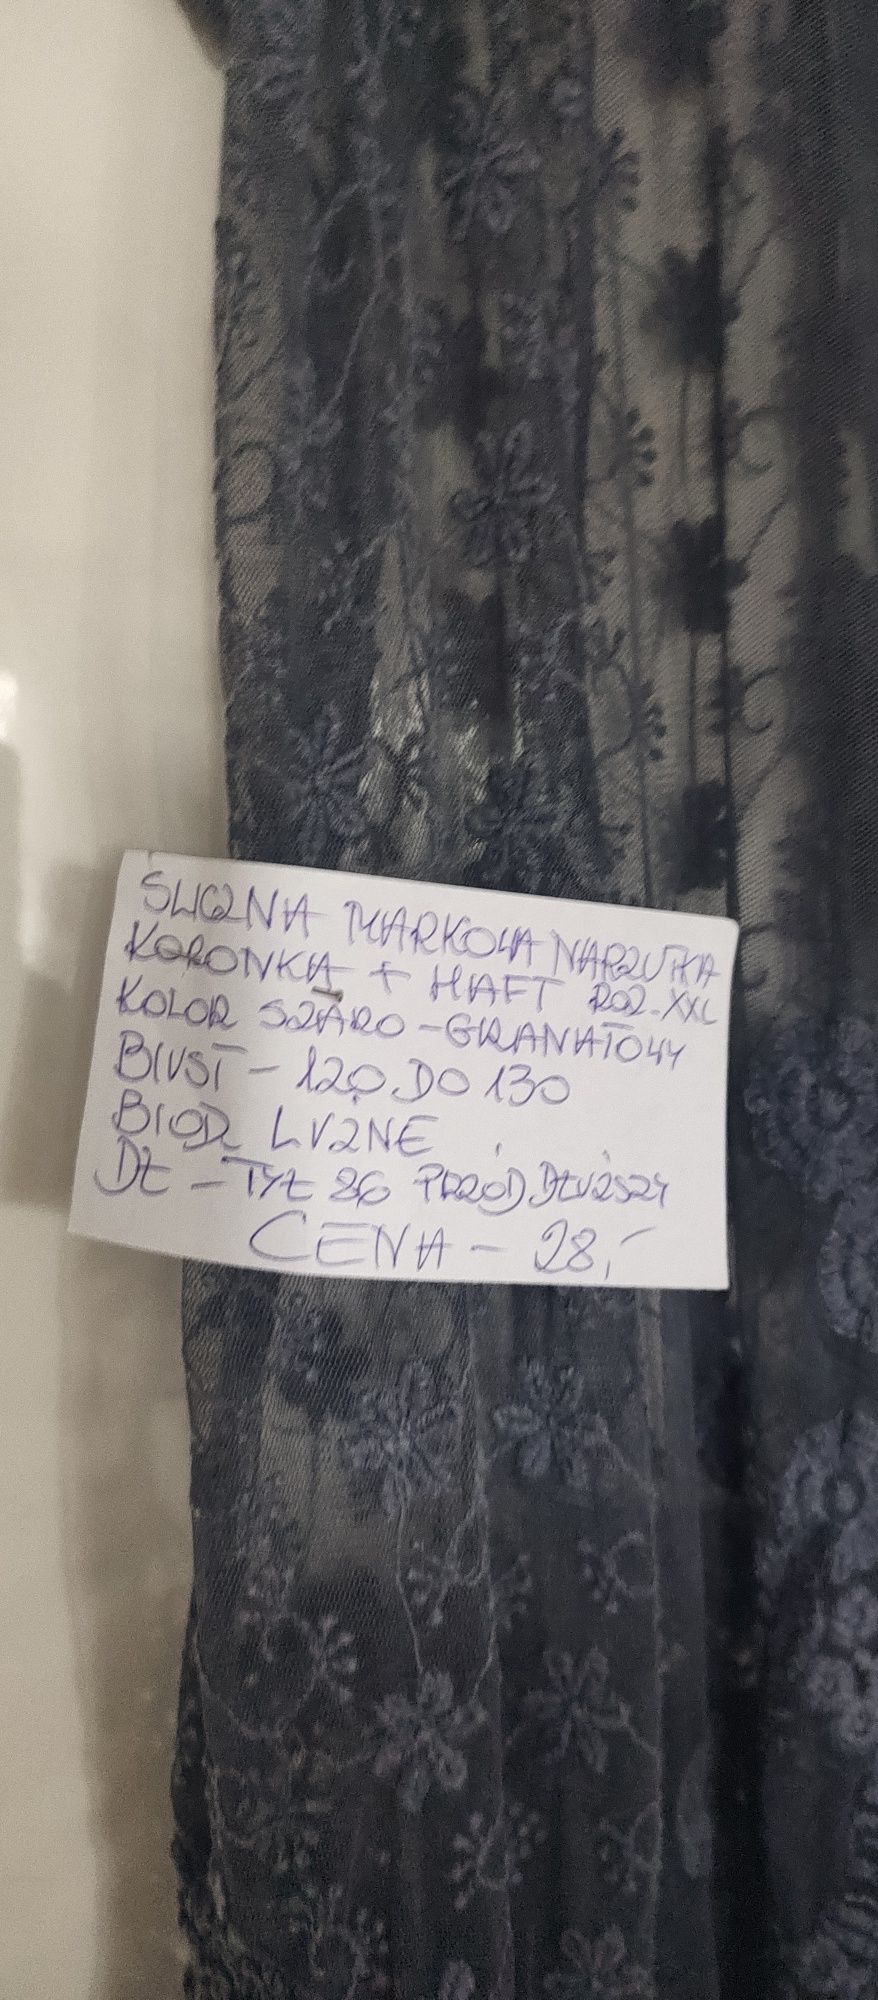 ŚLICZNA MARKOWA NARZUTKA
KORONKA + HAFT ROZ. XXL
KOLOR SZARO - GRANATOWY
BIUST - 120 DO 130
BIODR LUŹNE
DŁ - TYŁ 86 PRZÓD DŁUŻSZY
CENA - 28,-